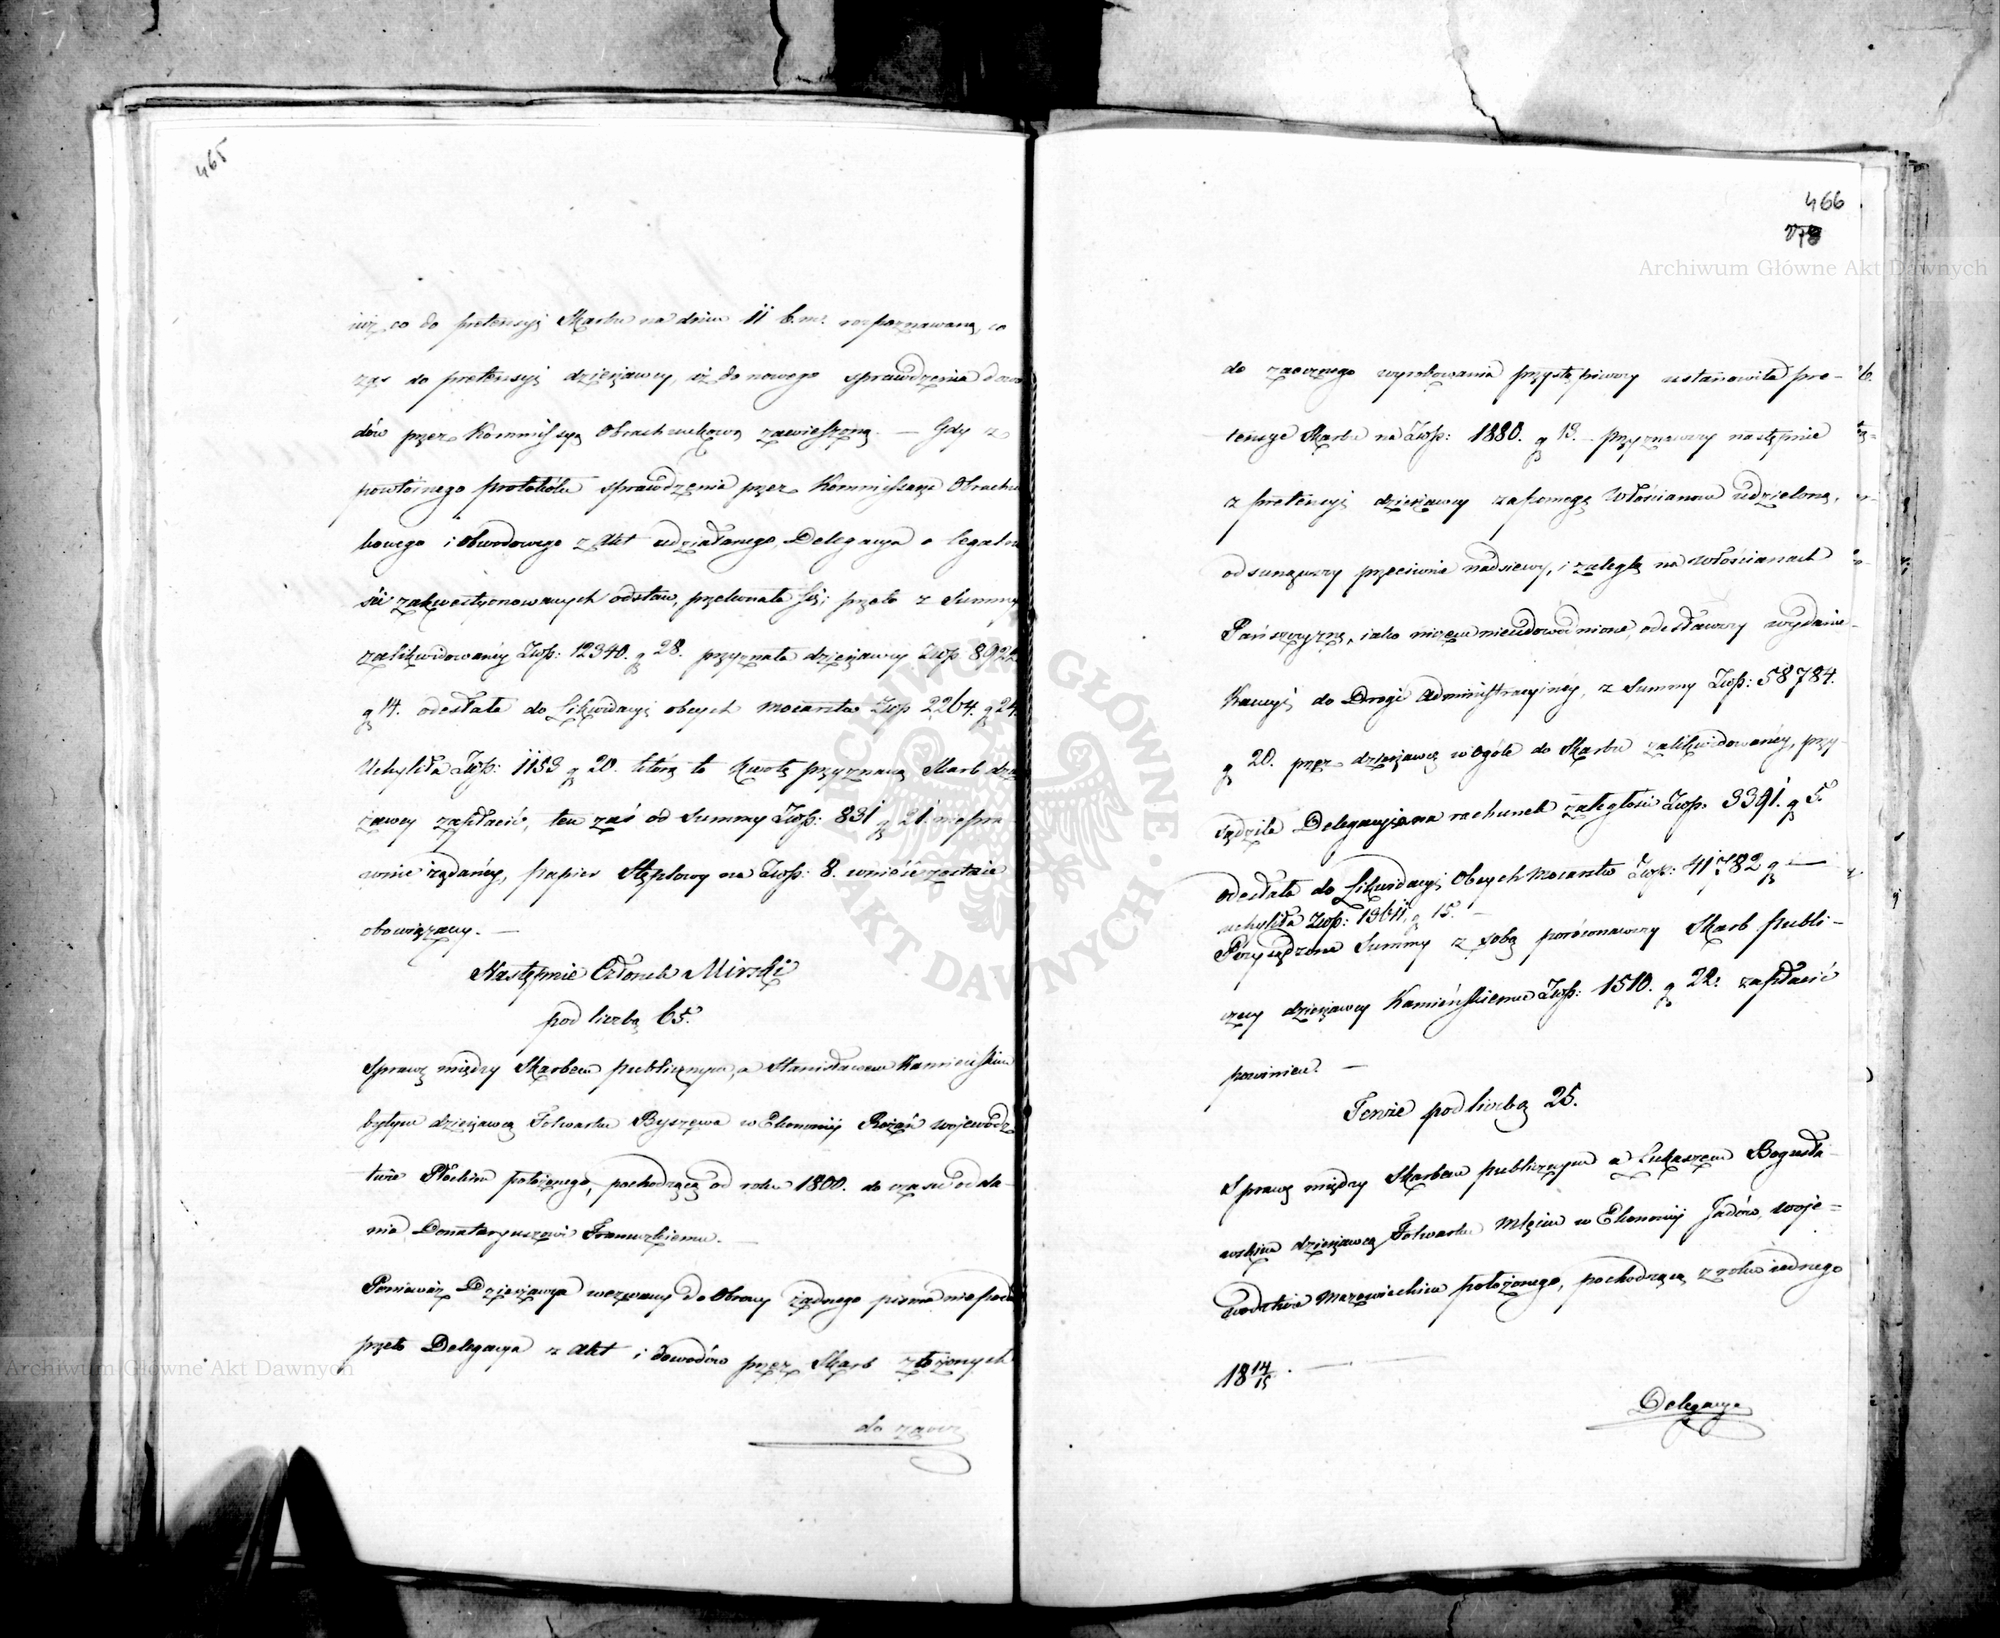 465
iuż co do pretensyi Skarbu na dniu 11 b. m. rozpoznawaną, co
zaś do pretensyi dzierżawcy, iż do nowego sprawdzenia dowo
dów przez Kommissyą Obrachunkową zawieszoną. — Gdy z
powtórnego protokółu sprawdzenia przez Kommissarza Obrachun
kowego i Obwodowego z Akt udziałanego, Delegacya o legalno
ści zakwestyonowanych odstaw, przekonała się; przeto z Summy
zalikwidowanéy Złp: 12340. g 28. przyznała dzierżawcy Złp 8922
g 14. odesłała do Likwidacyi obcych mocarstw Złp 2264. g 24.
Uchyliła Złp: 1153 g 20. którą to kwotę przyznaną Skarb dzier
żawcy zapłacić, ten zaś od Summy Złp: 831 g 21. niepra
wnie żądanéy, papier Stęplowy na Złp: 8. wnieść zostaie
obowiązany. —
Następnie Członek Mirski
pod liczbą 65.
Sprawę między Skarbem publicznym, a Stanisławem Kamieńskim
byłym dzierżawcą Folwarku Byszewa w Ekonomij Rożan wojewódz
twie Płockim położonego, pochodzącą od roku 1800. do czasu odda-
nia Donataryuszowi Francuzkiemu. —
Ponieważ Dzierżawca wezwany do Obrony żadnego pisma niepodał
przeto Delegacya z Akt i dowodów przez Skarb złożonych
do zaocz
466
78
Archiwum Główne Akt Dawnych
do zaocznego wyrobowania przystąpiwszy ustanowiła pre-
tensye Skarbu na Złp: 1880. g 13. — przyznawszy następnie
z pretensyi dzierżawcy zapomogę Włościanom udzieloną,
odsunąwszy przeciwnie nadsiewy, i zaległą na włościanach
Pańszczyznę, iako niczem nieudowodnione, odesławszy wydanie
Kaucyi do Drogi Administracyinéy, z Summy Złp: 58784.
g 20. przez dzierżawcę wogóle do Skarbu zalikwidowanéy, przy-
sądziła Delegacya na rachunek zaległości Złp. 3391. g 5.
odesłała do Likwidacyi Obcych mocarstw Złp: 41782 g —
uchyliła Złp: 13611. g 15. —
Przysądzone Summy z sobą porównawszy Skarb Publi-
czny dzierżawcy Kamieńskiemu Złp: 1510. g 22. zapłacić
powinien. —
Tenże pod liczbą 25.
Sprawę między Skarbem publicznym a Łukaszem Bogusła-
wskim dzierżawcą Folwarku Męcin w Ekonomij Jadów, woje=
wództwie Mazowieckim położonego, pochodzącą z roku iednego
18 14/15. —
Delegacya
Archiwum Główne Akt Dawnych
ARCHIWUM GŁÓWNE · AKT DAWNYCH ·